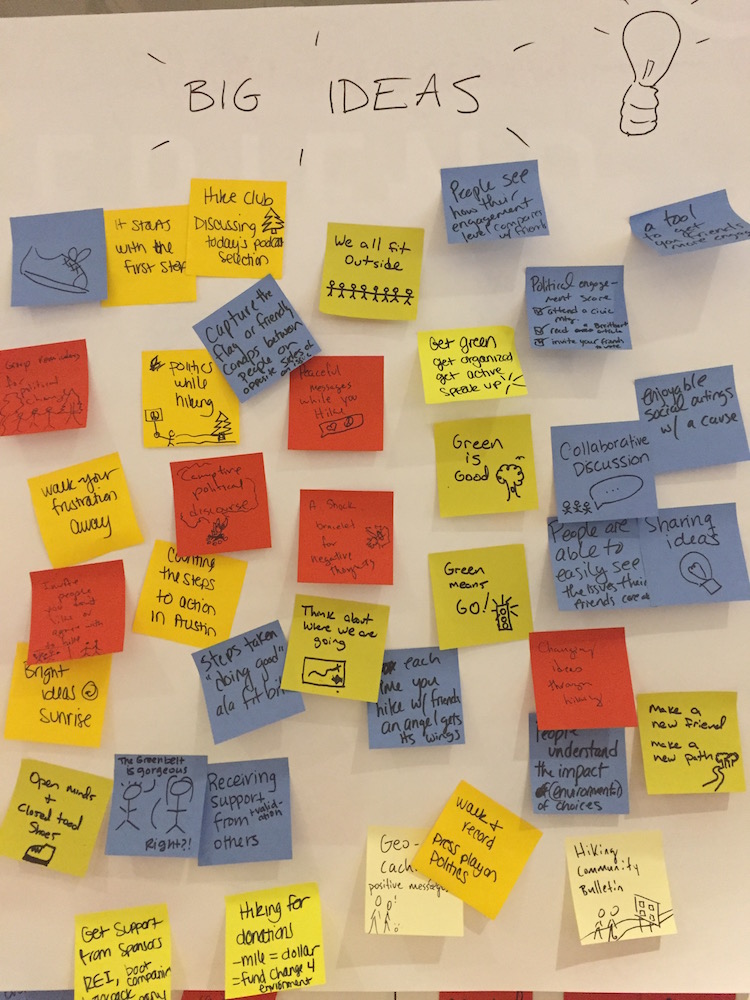 BIG IDEAS
It starts
with the
first step
Hike Club
Discussing
today's podcast
selection
We all fit
Outside
People see
how their
engagement
level compares
w/ friends
a tool
to get
you & friends
more engag
Capture the
flag or friendly
comps between
people on
opposite sides of
Political engage-
ment score
attend a civic
mtg.
read a Breitbart
article
invite your friends
Group
for
political
change
politics
while
hiking
Peaceful
messages
while you
Hike
Get green
get organized
get active
Speak up!
Enjoyable
social outings
w/ a cause
Green
is
Good
Collaborative
Discussion
Walk your
frustration
away
Campfire
political
discourse
A Shock
bracelet
for
negative
thoughts
People are
able to
easily see
the issues their
friends care
Sharing
ideas
Counting
the steps
to action
in Austin
Green
means
GO!
Invite
people
you
agree with
Think about
where we are
going
Steps taken
"doing good"
ala fit bit
each
time you
hike w/ friends
an angel gets
its wings
Changing
ideas
through
hiking
Bright
ideas @
Sunrise
Make a
new friend
make a
new path
People
understand
the impact
(environmental)
of choices
Open minds
+
Closed toed
Shoes
The Greenbelt
is gorgeous
Right?!
Receiving
Support
from + valid-
ation
others
Walk &
record
press play on
Politics
Geo-
Cach
positive messages
Hiking
Community
Bulletin
Get Support
from Sponsors
REI, boot
Hiking for
donations
-mile = dollar
=fund change 4
enviroment